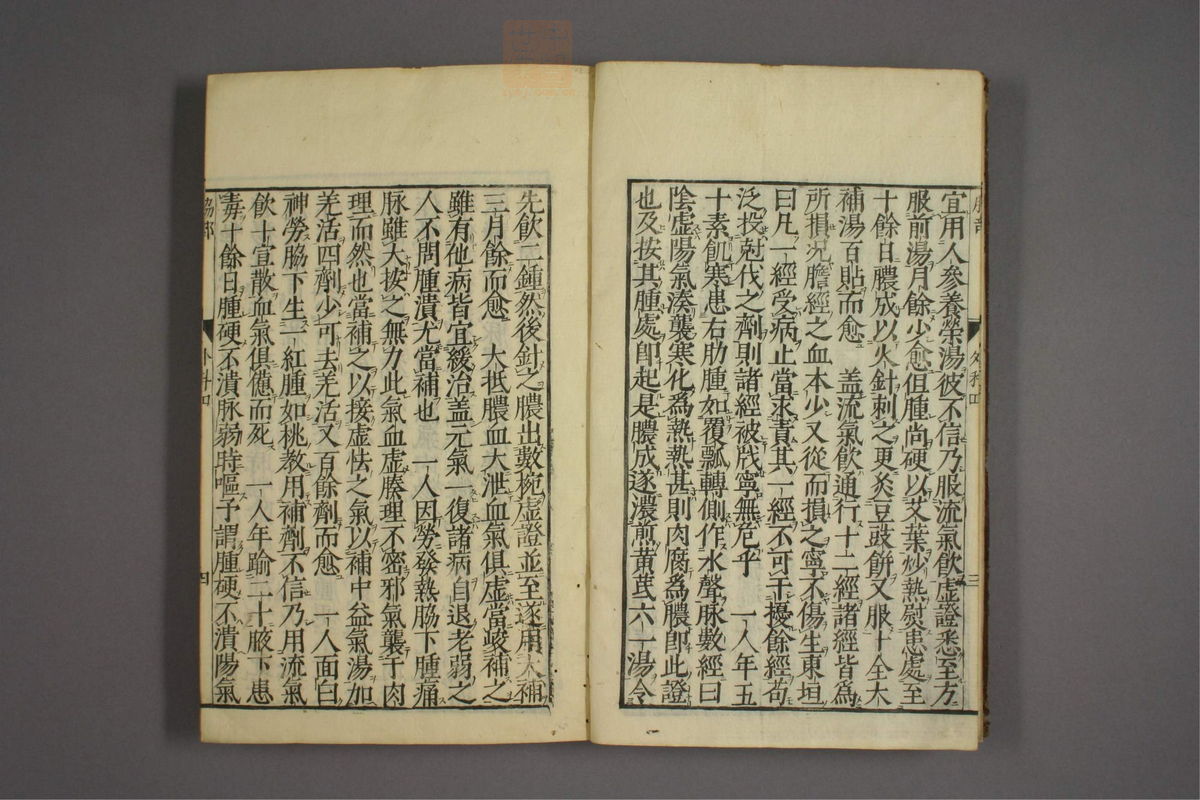 宜用人參養榮湯彼不信乃服流氣飲虛證悉至方
服前湯月餘少愈但腫尚硬以艾葉炒熱熨患處至
十餘日膿成以火針刺之更灸豆豉餅又服十全大
補湯百貼而愈　盖流氣飲通行十二經諸經皆為
所損况膽經之血本少又從而損之寧不傷生東垣
曰凡一經受病止當求責其一經不可干擾餘經苟
泛投尅伐之劑則諸經被戕寧無危乎　一人年五
十素飢寒患右肋腫如覆瓢轉側作水聲脉數經曰
陰虛陽氣湊襲寒化為熱熱甚則肉腐為膿卽此證
也及按其腫處卽起是膿成遂濃煎黄芪六一湯令
先飲二鍾然後針之膿出數椀虛證並至遂用大補
三月餘而愈　大抵膿血大泄血氣俱虛當峻補之
雖有他病皆宜緩治盖元氣一復諸病自退老弱之
人不問腫潰尤當補也　一人因勞發熱脇下腫痛
脉雖大按之無力此氣血虛腠理不密邪氣襲于肉
理而然也當補之以接虛怯之氣以補中益氣湯加
羌活四劑少可去羌活又百餘劑而愈　一人面白
神勞脇下生一紅腫如桃教用補劑不信乃用流氣
飲十宣散血氣俱憊而死　一人年踰二十腋下患
毒十餘日腫硬不潰脉弱時嘔予謂腫硬不潰陽氣
四